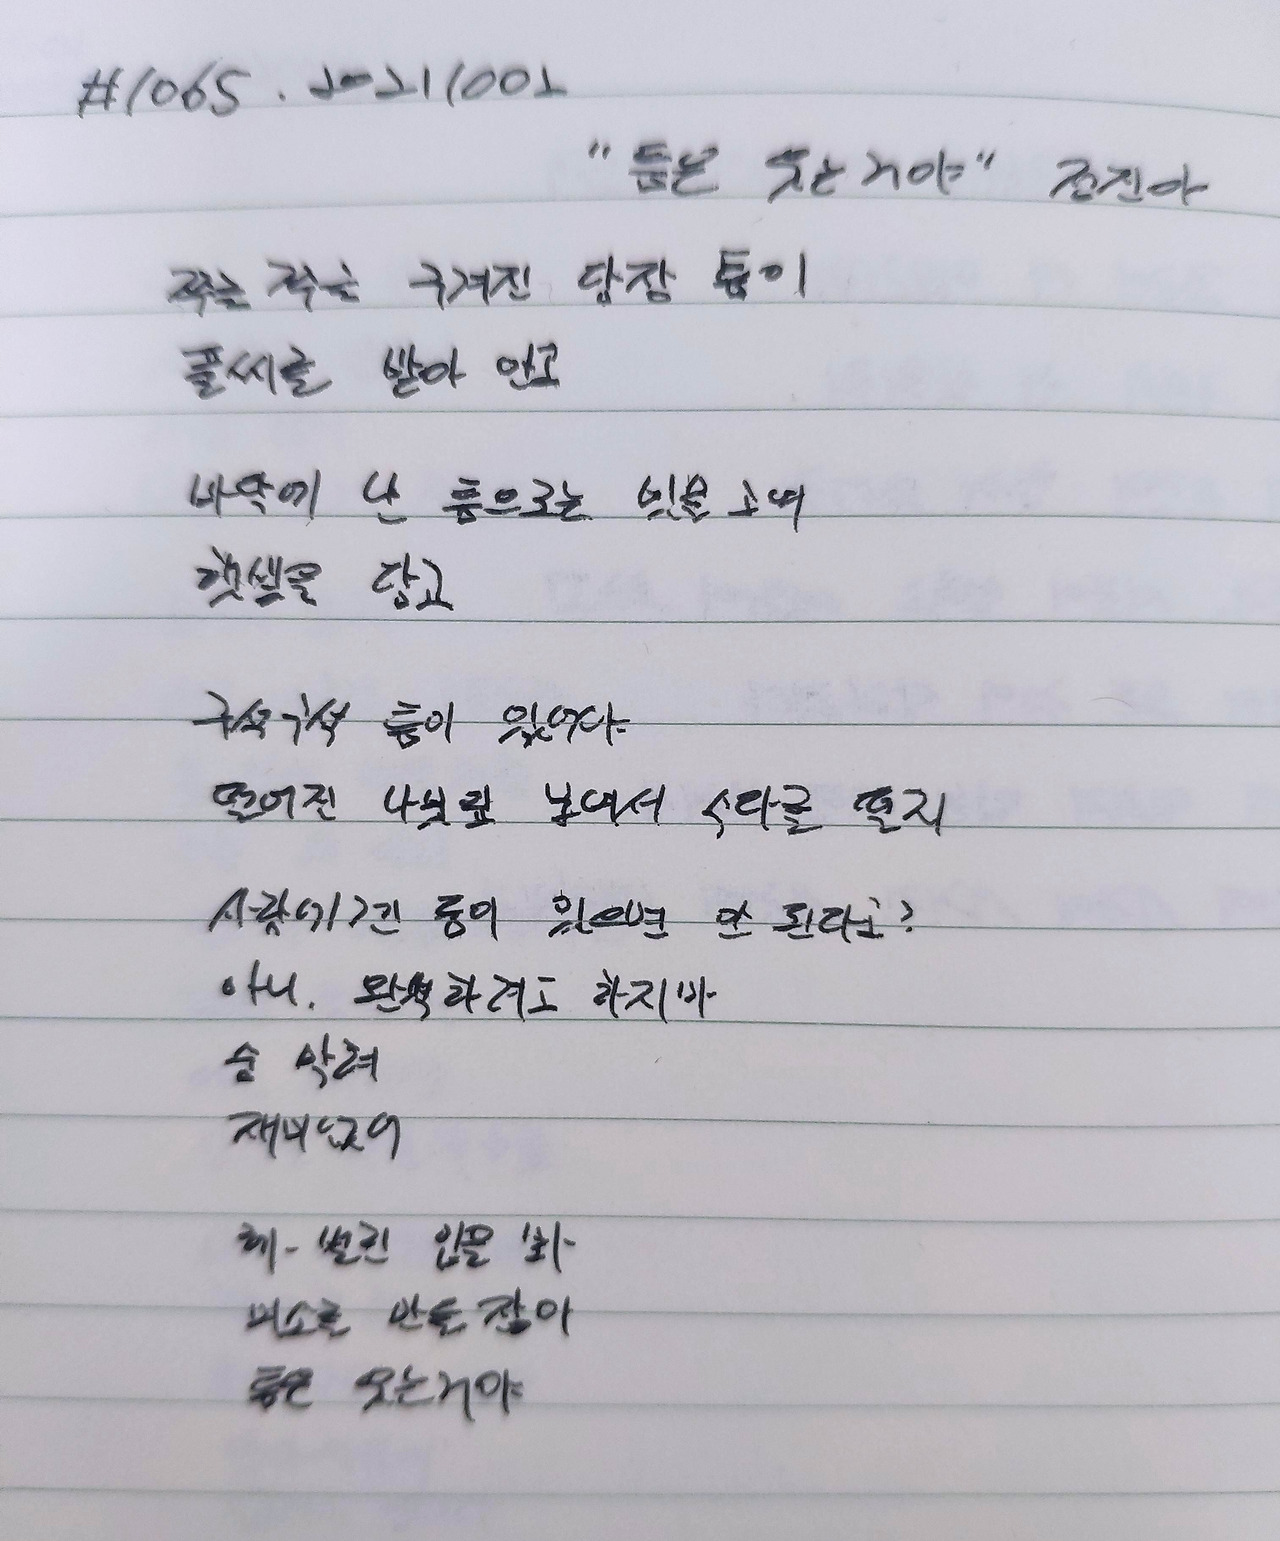 #1065. 20211002
"틈은 웃는거야" 전진아
죽는 죽는 구겨진 담장 틈이
풀씨를 받아 안고
바닥에 난 틈으로는 빗물 고여
햇샐을 담고
구석구석 틈이 있어야
떨어진 나뭇잎 보여서 수다를 떨지
사람에겐 틈이 있으면 안 된다고?
아니. 완벽하려고도 하지마
숨 막혀
재미없어
헤- 벌린 입을 봐
미소를 만들잖아
틈은 웃는거야